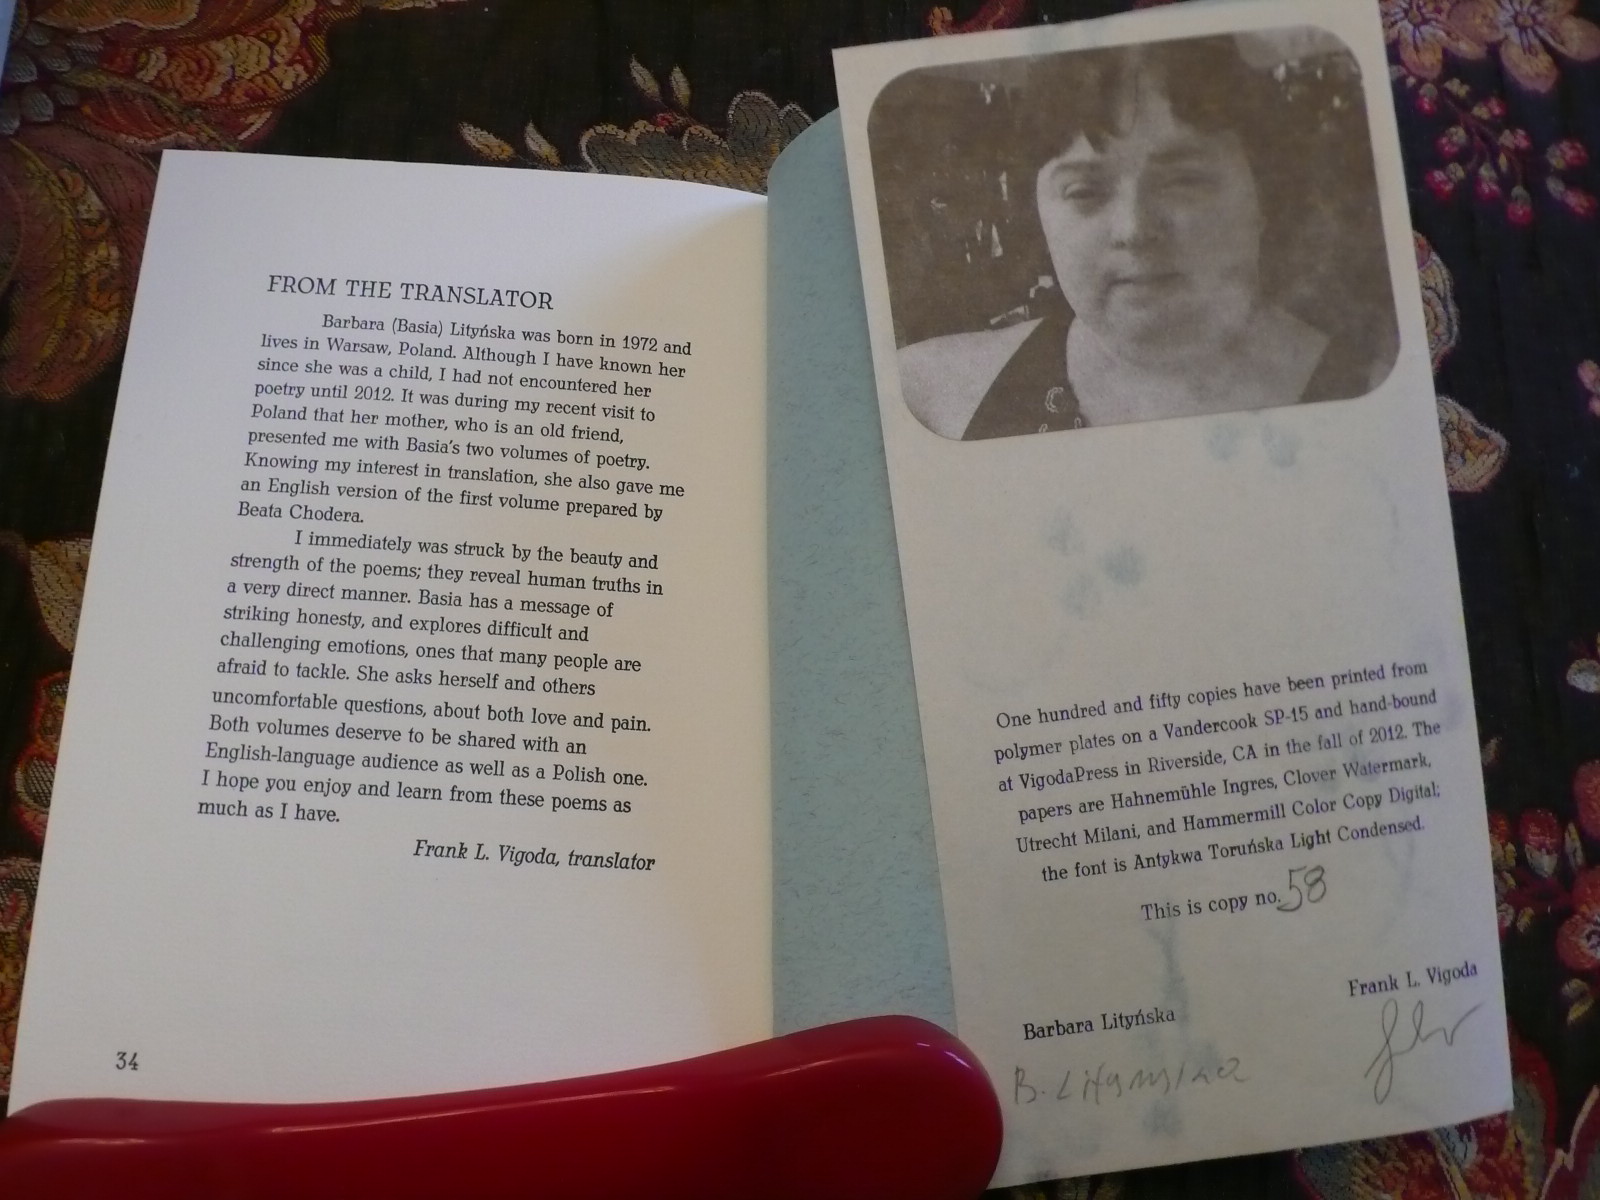 FROM THE TRANSLATOR
Barbara (Basia) Lityńska was born in 1972 and
lives in Warsaw, Poland. Although I have known her
since she was a child, I had not encountered her
poetry until 2012. It was during my recent visit to
Poland that her mother, who is an old friend,
presented me with Basia's two volumes of poetry.
Knowing my interest in translation, she also gave me
an English version of the first volume prepared by
Beata Chodera.
I immediately was struck by the beauty and
strength of the poems; they reveal human truths in
a very direct manner. Basia has a message of
striking honesty, and explores difficult and
challenging emotions, ones that many people are
afraid to tackle. She asks herself and others
uncomfortable questions, about both love and pain.
Both volumes deserve to be shared with an
English-language audience as well as a Polish one.
I hope you enjoy and learn from these poems as
much as I have.
Frank L. Vigoda, translator
34
One hundred and fifty copies have been printed from
polymer plates on a Vandercook SP-15 and hand-bound
at VigodaPress in Riverside, CA in the fall of 2012. The
papers are Hahnemühle Ingres, Clover Watermark,
Utrecht Milani, and Hammermill Color Copy Digital;
the font is Antykwa Toruńska Light Condensed.
This is copy no. 58
Frank L. Vigoda
Barbara Lityńska
B. Lityńska